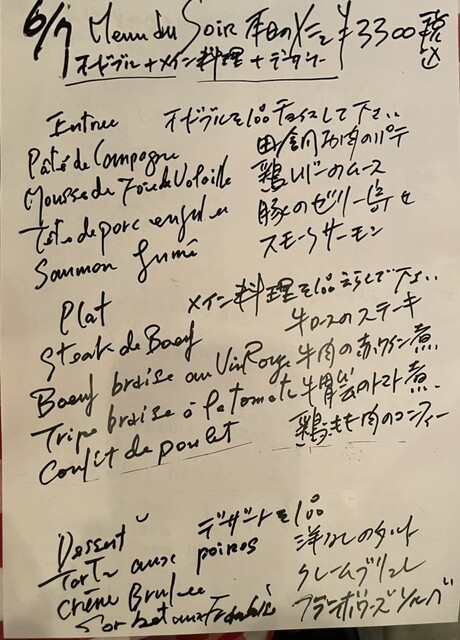 6/7 Menu du Soir 本日のメニュー ¥3300 税込
オードブル+メイン料理+デザート
Entree オードブルを1品チョイスして下さい
Pâté de Campagne 田舎風 豚肉のパテ
Mousse de Foie de Volaille 鶏レバーのムース
Tête de porc en gelée 豚のゼリー寄せ
Saumon fumé スモークサーモン
Plat メイン料理を1品えらんで下さい
Steak de Boeuf 牛ロースのステーキ
Boeuf braise au Vin Rouge 牛肉の赤ワイン煮
Tripe braise à la tomate 牛胃袋のトマト煮
Confit de poulet 鶏もも肉のコンフィー
Dessert デザートを1品
Tarte aux poires 洋なしのタルト
Crème Brulee クレームブリュレ
Sorbet aux Framboise フランボワーズソルベ